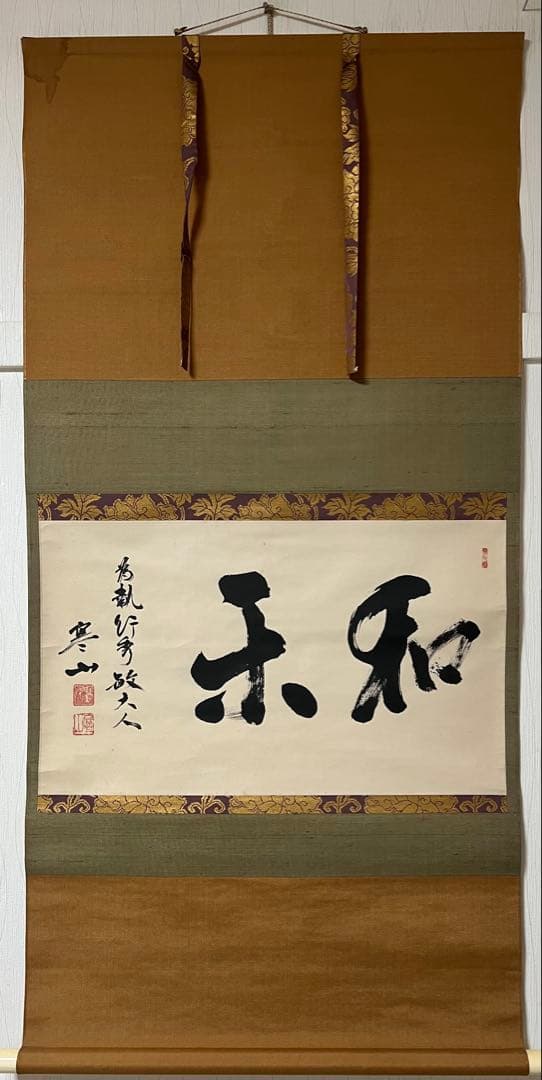 和楽
為執行秀敏大人
寒山